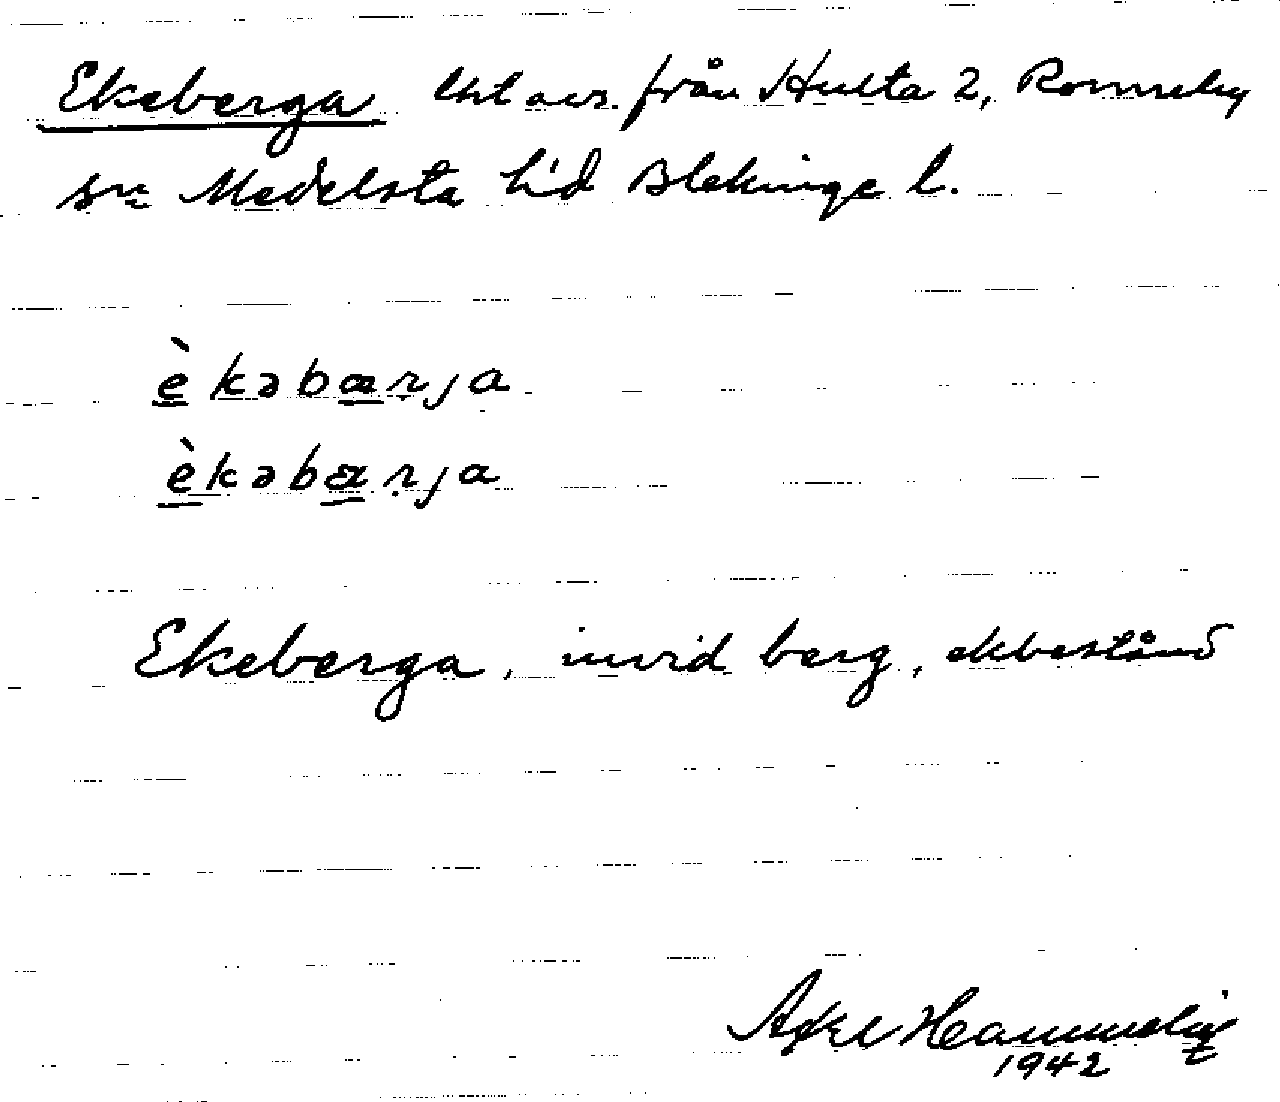 Ekeberga lht avs. från Hulta 2, Ronneby
sn Medelsta hd Blekinge l.
èkəbærja
èkəbarja
Ekeberga, invid berg, ekbestånd
Axel
1942